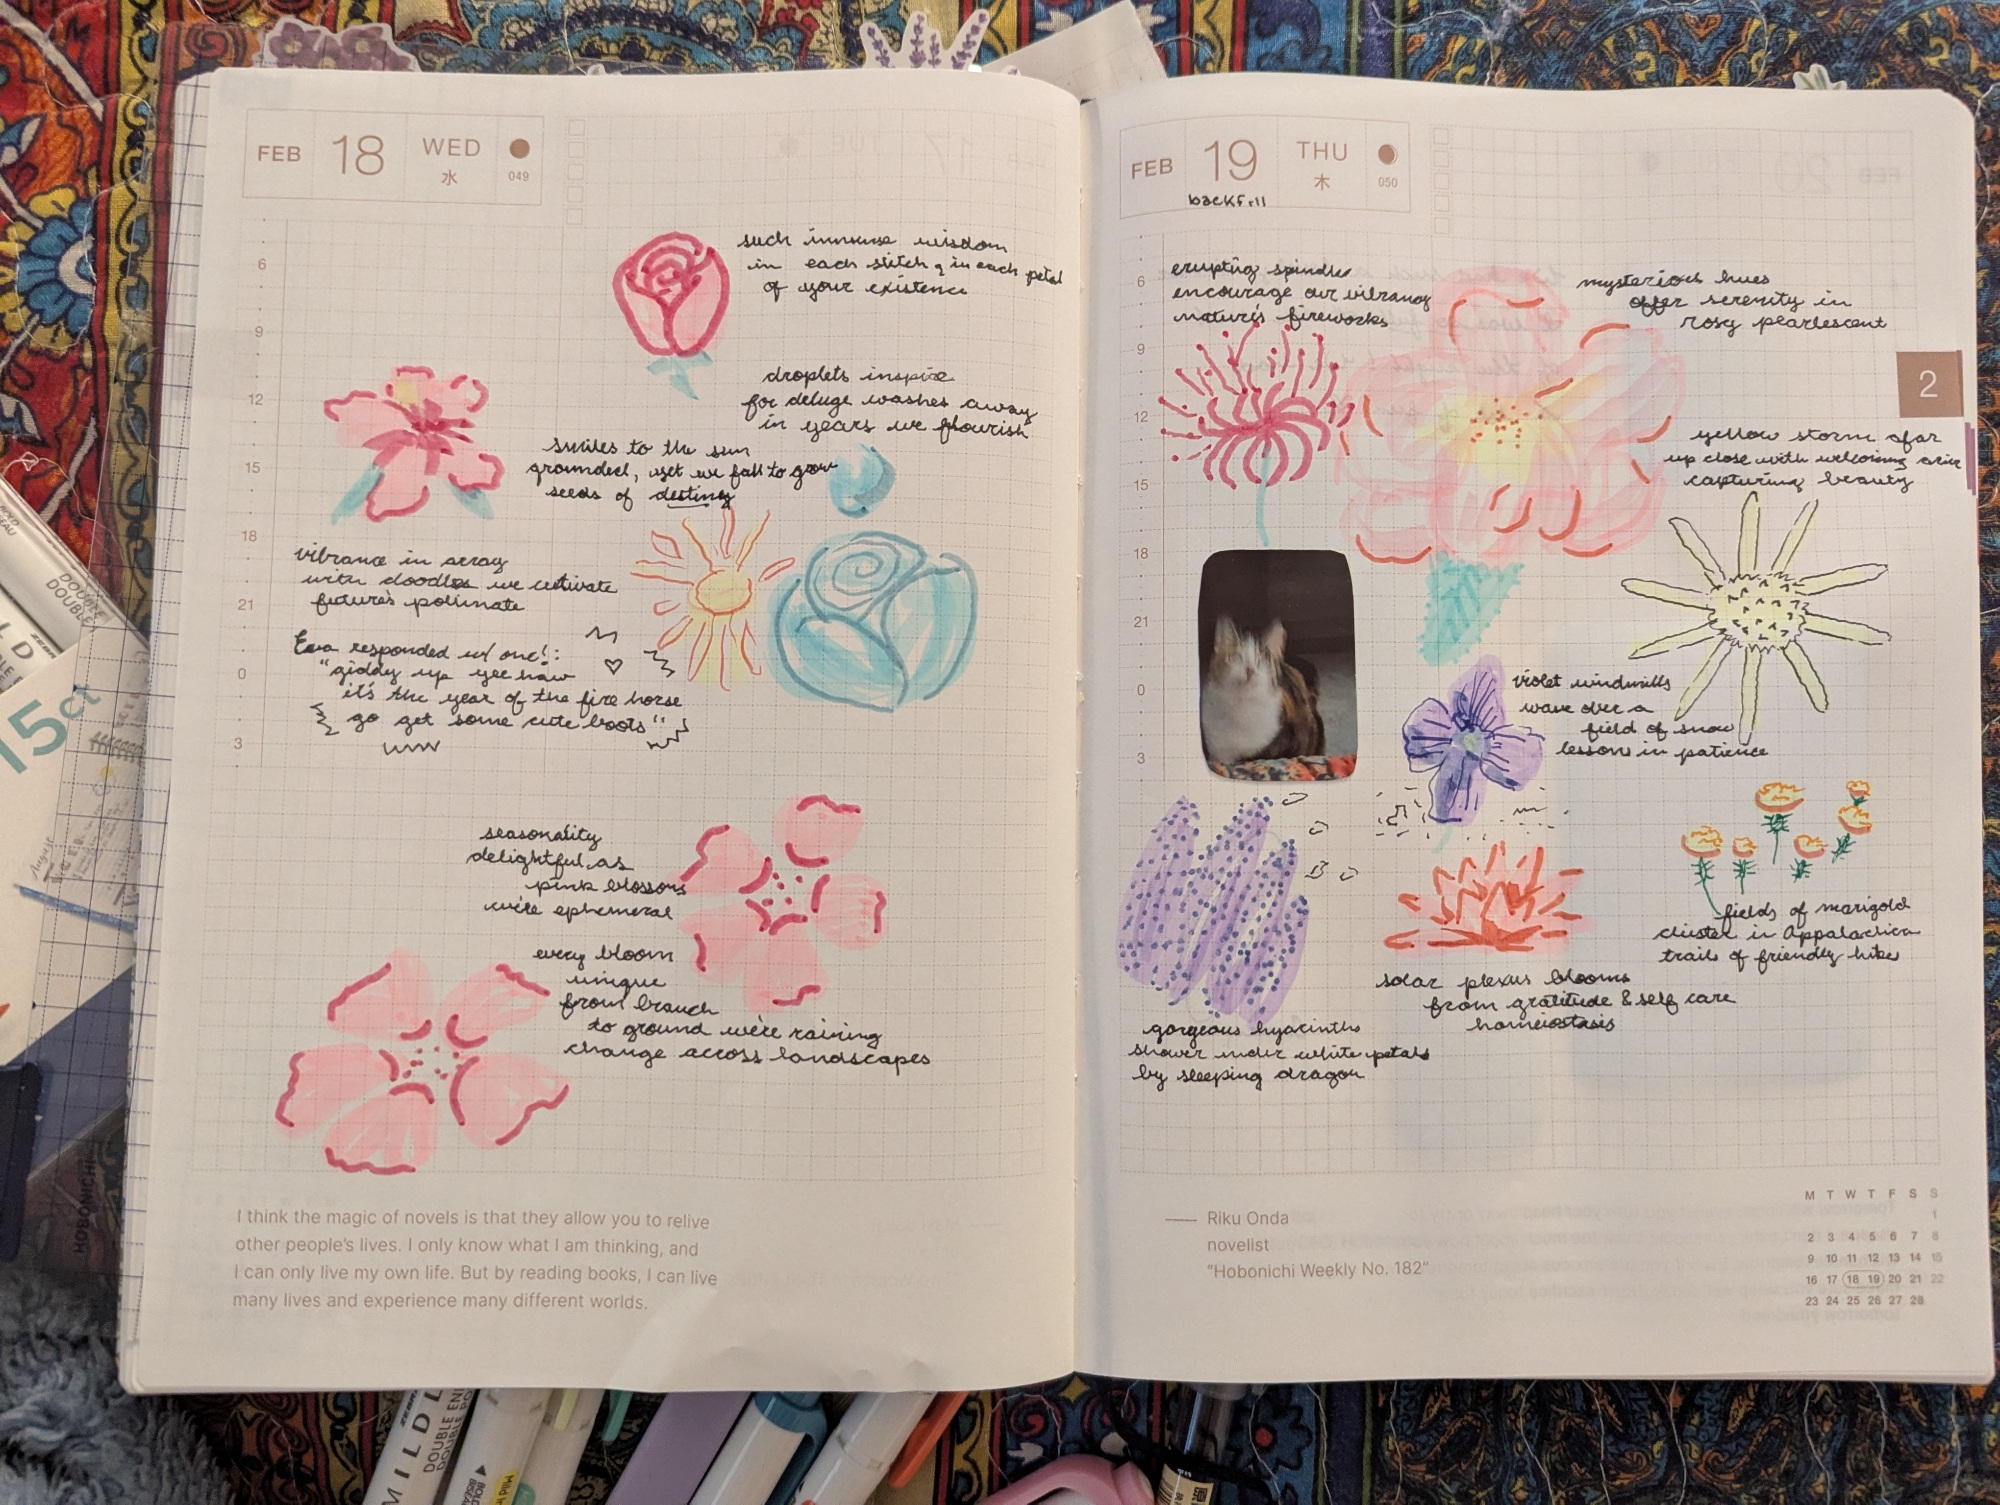 FEB 18 WED 水 049
such immense wisdom
in each stitch & in each petal
of your existence
droplets inspire
for deluge washes away
in years we flourish
smiles to the sun
grounded, yet we fall to grow
seeds of destiny
vibrance in array
with doodles we cultivate
future's pollinate
Eva responded w/ one!:
"giddy up yee haw
it's the year of the fire horse
go get some cute boots"
seasonality
delightful as
pink blossoms
we're ephemeral
every bloom
unique
from branch
to ground we're raining
change across landscapes
6
9
12
15
18
21
0
3
I think the magic of novels is that they allow you to relive
other people's lives. I only know what I am thinking, and
I can only live my own life. But by reading books, I can live
many lives and experience many different worlds.
FEB 19 THU 木 050
backfill
erupting spindles
encourage our vibrancy
nature's fireworks
mysterious hues
offer serenity in
rosy pearlescent
yellow storm afar
up close with welcoming
capturing beauty
violet windmills
wave over a
field of snow
lessons in patience
fields of marigold
cluster in Appalachia
trails of friendly hike
solar plexus blooms
from gratitude & self care
homeiostasis
gorgeous hyacinths
shower under white petals
by sleeping dragon
6
9
12
15
18
21
0
3
2
—— Riku Onda
novelist
"Hobonichi Weekly No. 182"
M T W T F S S
1
2 3 4 5 6 7 8
9 10 11 12 13 14 15
16 17 18 19 20 21 22
23 24 25 26 27 28
15ct
DOUBLE
HOBONICHI
MILDL
DOUBLE EN